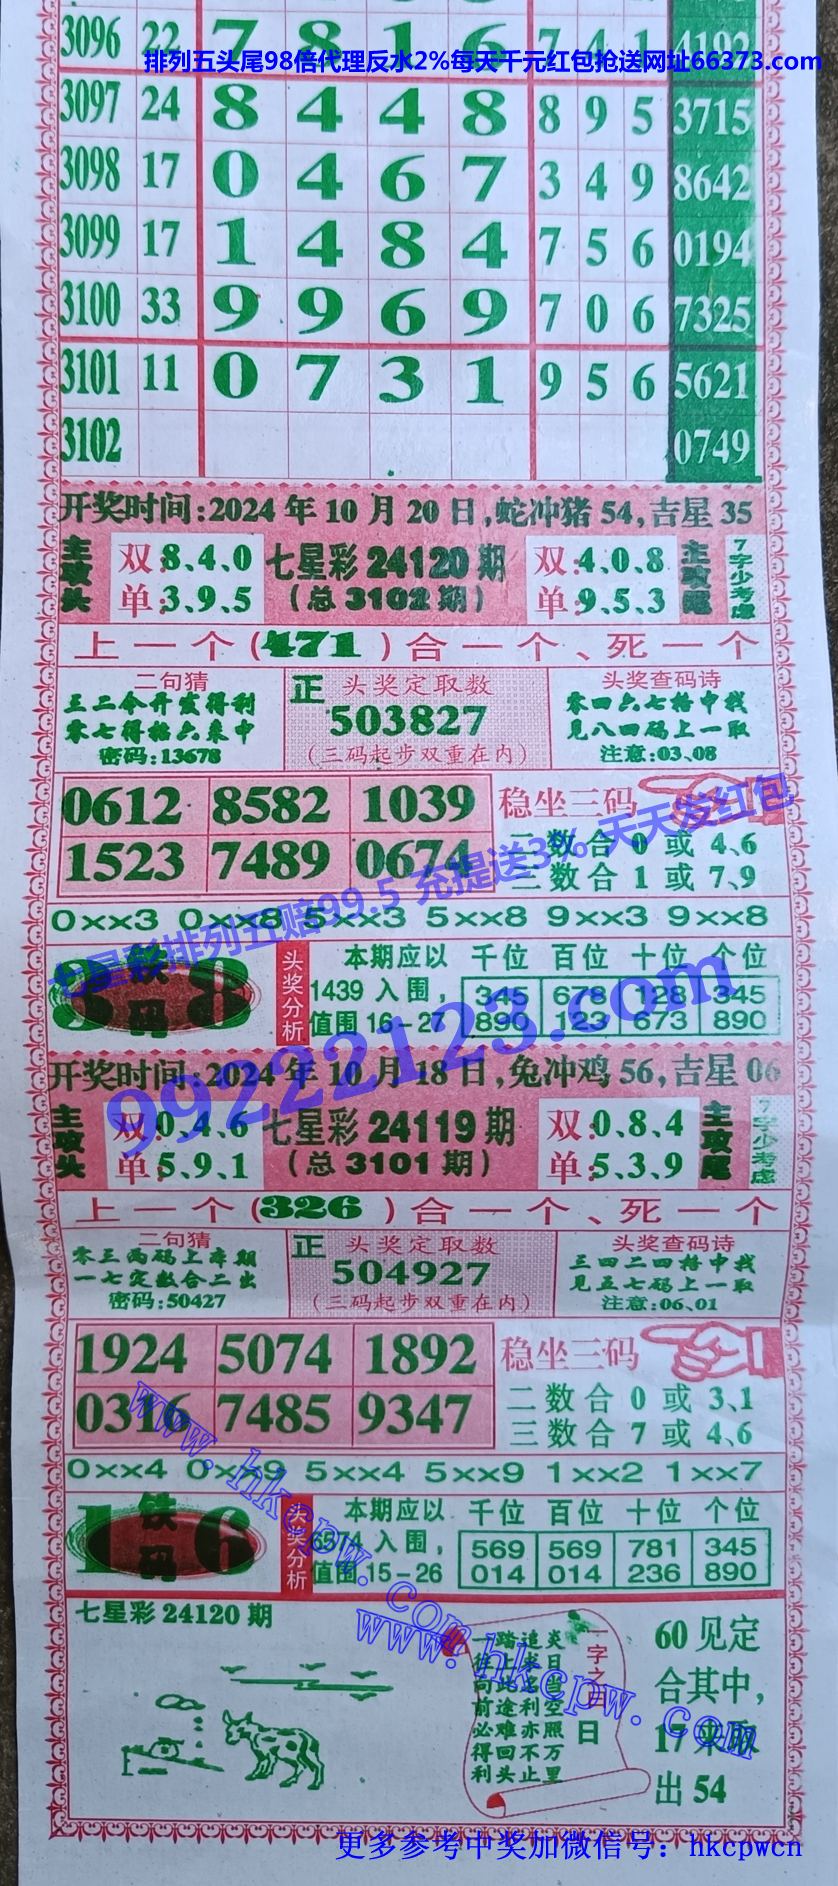 3096 22 7 8 1 6 7 4 1 4192
排列五头尾98倍代理反水2%每天千元红包抢送网址66373.com
3097 24 8 4 4 8 8 9 5 3715
3098 17 0 4 6 7 3 4 9 8642
3099 17 1 4 8 4 7 5 6 0194
3100 33 9 9 6 9 7 0 6 7325
3101 11 0 7 3 1 9 5 6 5621
3102 0749
开奖时间:2024年10月20日,蛇冲猪54,吉星35
主攻头
双:8、4、0
单:3、9、5
七星彩24120期
(总3102期)
双:4、0、8
单:9、5、3
主攻尾
7字少考虑
上一个(471)合一个、死一个
二句猜
三二今开发得利
零七得格六来中
密码:13678
正 头奖定取数
503827
(三码起步双重在内)
头奖查码诗
零四六七格中找
见八四码上一取
注意:03、08
0612 8582 1039
1523 7489 0674
稳坐三码
二数合0或4、6
三数合1或7、9
七星彩排列五赔99.5 充提送3% 天天发红包
0××3 0××8 5××3 5××8 9××3 9××8
铁码
8
头奖分析
本期应以 千位 百位 十位 个位
1439入围, 345 678 128 345
值围16-27 890 123 673 890
99222123.com
开奖时间:2024年10月18日,兔冲鸡56,吉星06
主攻头
双:0、4、6
单:5、9、1
七星彩24119期
(总3101期)
双:0、8、4
单:5、3、9
主攻尾
7字少考虑
上一个(326)合一个、死一个
二句猜
零三两码上本期
一七定数合二出
密码:50427
正 头奖定取数
504927
(三码起步双重在内)
头奖查码诗
三四二四格中找
见五七码上一取
注意:06、01
1924 5074 1892
0316 7485 9347
稳坐三码
二数合0或3、1
三数合7或4、6
www.hkcpw.com
0××4 0××9 5××4 5××9 1××2 1××7
1 铁码 6
头奖分析
本期应以 千位 百位 十位 个位
6574入围, 569 569 781 345
值围15-26 014 014 236 890
七星彩24120期
一字之曰
日
炎日当空照万里
追求名利亦不止
踏上此途难回头
一往向前必得利
60见定
合其中,
17来取
出54
www.hkcpw.com
更多参考中奖加微信号：hkcpwcn